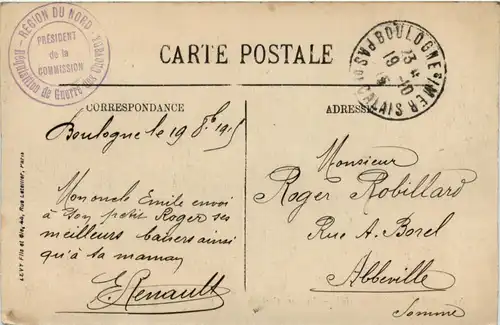 RÉGION DU NORD
PRÉSIDENT
de la
COMMISSION
Réquisition de Guerre des
CARTE POSTALE
BOULOGNE S/MER
13
19 -10
PAS DE CALAIS
CORRESPONDANCE
ADRESSE
Boulogne le 19 8bre 1915
Mon oncle Emile envoi
à son petit Roger ses
meilleurs baisers ainsi
qu'à ta maman
E. Renault
Monsieur
Roger Robillard
Rue A. Borel
Abbeville
Somme
LEVY Fils et Cie, 44, Rue Letellier, Paris